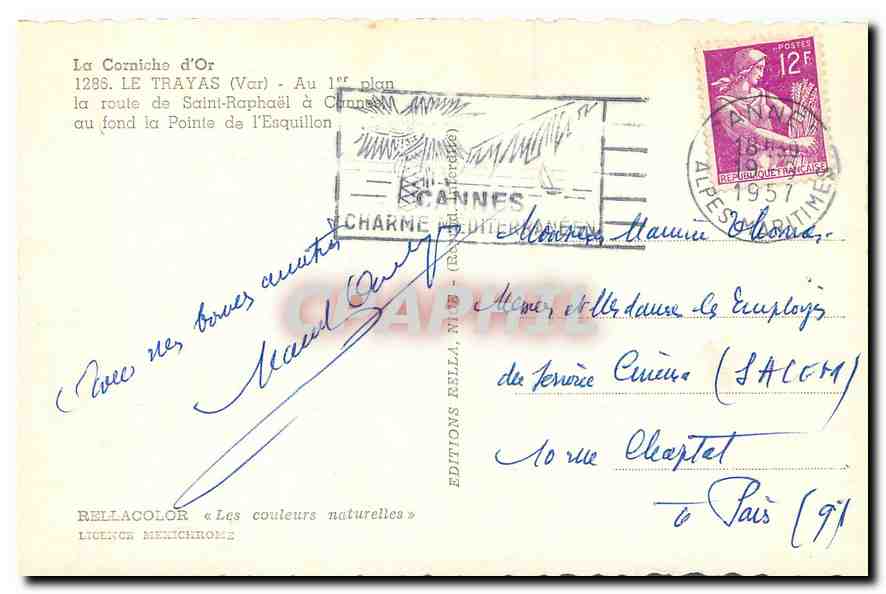 La Corniche d'Or
1286. LE TRAYAS (Var) - Au 1er plan
la route de Saint-Raphaël à Cannes
au fond la Pointe de l'Esquillon
CANNES
CHARME MEDITERRANÉEN
POSTES
12F
REPUBLIQUE FRANÇAISE
CANNES
18H30
1957
ALPES MARITIMES
Avec mes bonnes amitiés
EDITIONS RELLA, NICE - (Reprod. Interdite)
CPAPHIL
Monsieur Maurice Thomas
Messrs et Mesdames les Employés
du Service Cinéma (SACEM)
10 rue Chaptal
à Paris (9e)
RELLACOLOR « Les couleurs naturelles »
LICENCE MEXICHROME